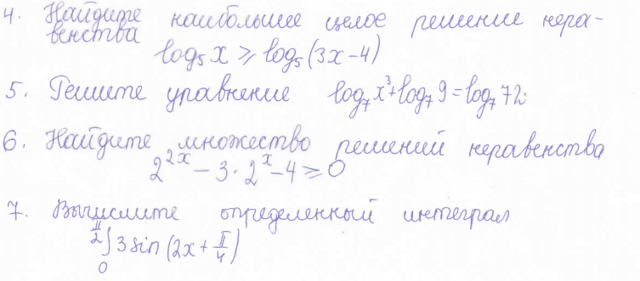 4. Найдите наибольшее целое решение нера-
венства
log₅ x ⩾ log₅ (3x-4)
5. Решите уравнение log₇ x³+log₇ 9 = log₇ 72.
6. Найдите множество решений неравенства
2^{2x} - 3 · 2^x - 4 ⩾ 0
7. Вычислите определенный интеграл
∫_0^{π/2} 3 sin (2x + π/4)